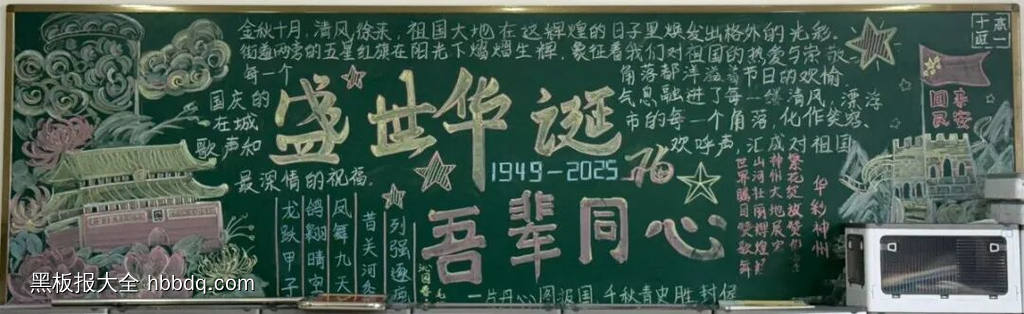 金秋十月,清风徐来,祖国大地在这辉煌的日子里焕发出格外的光彩。
街道两旁的五星红旗在阳光下熠熠生辉,象征着我们对祖国的热爱与崇敬
每一个角落都洋溢着节日的欢愉
国庆的气息融进了每一缕清风,漂浮
在城市的每一个角落,化作笑容、
歌声和欢呼声,汇成对祖国
最深情的祝福。
盛世华诞
1949-2025 76
吾辈同心
龙跃甲子
鸽翔晴空
凤舞九天
昔关河
列强逐
一片丹心图报国,千秋青史胜封侯
华彩神州
繁花绽放赞
神州大地展
山河壮丽辉煌
世界瞩目赞歌舞
国 家
富
高一
十班
黑板报大全 hbbdq.com